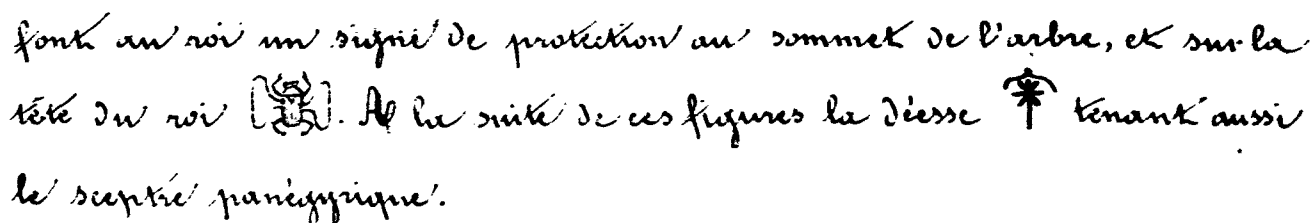 font au roi un signe de protection au sommet de l'arbre, et sur la
tête du roi [𓆣]. A la suite de ces figures la déesse 𓋇 tenant aussi
le sceptre panégyrique.